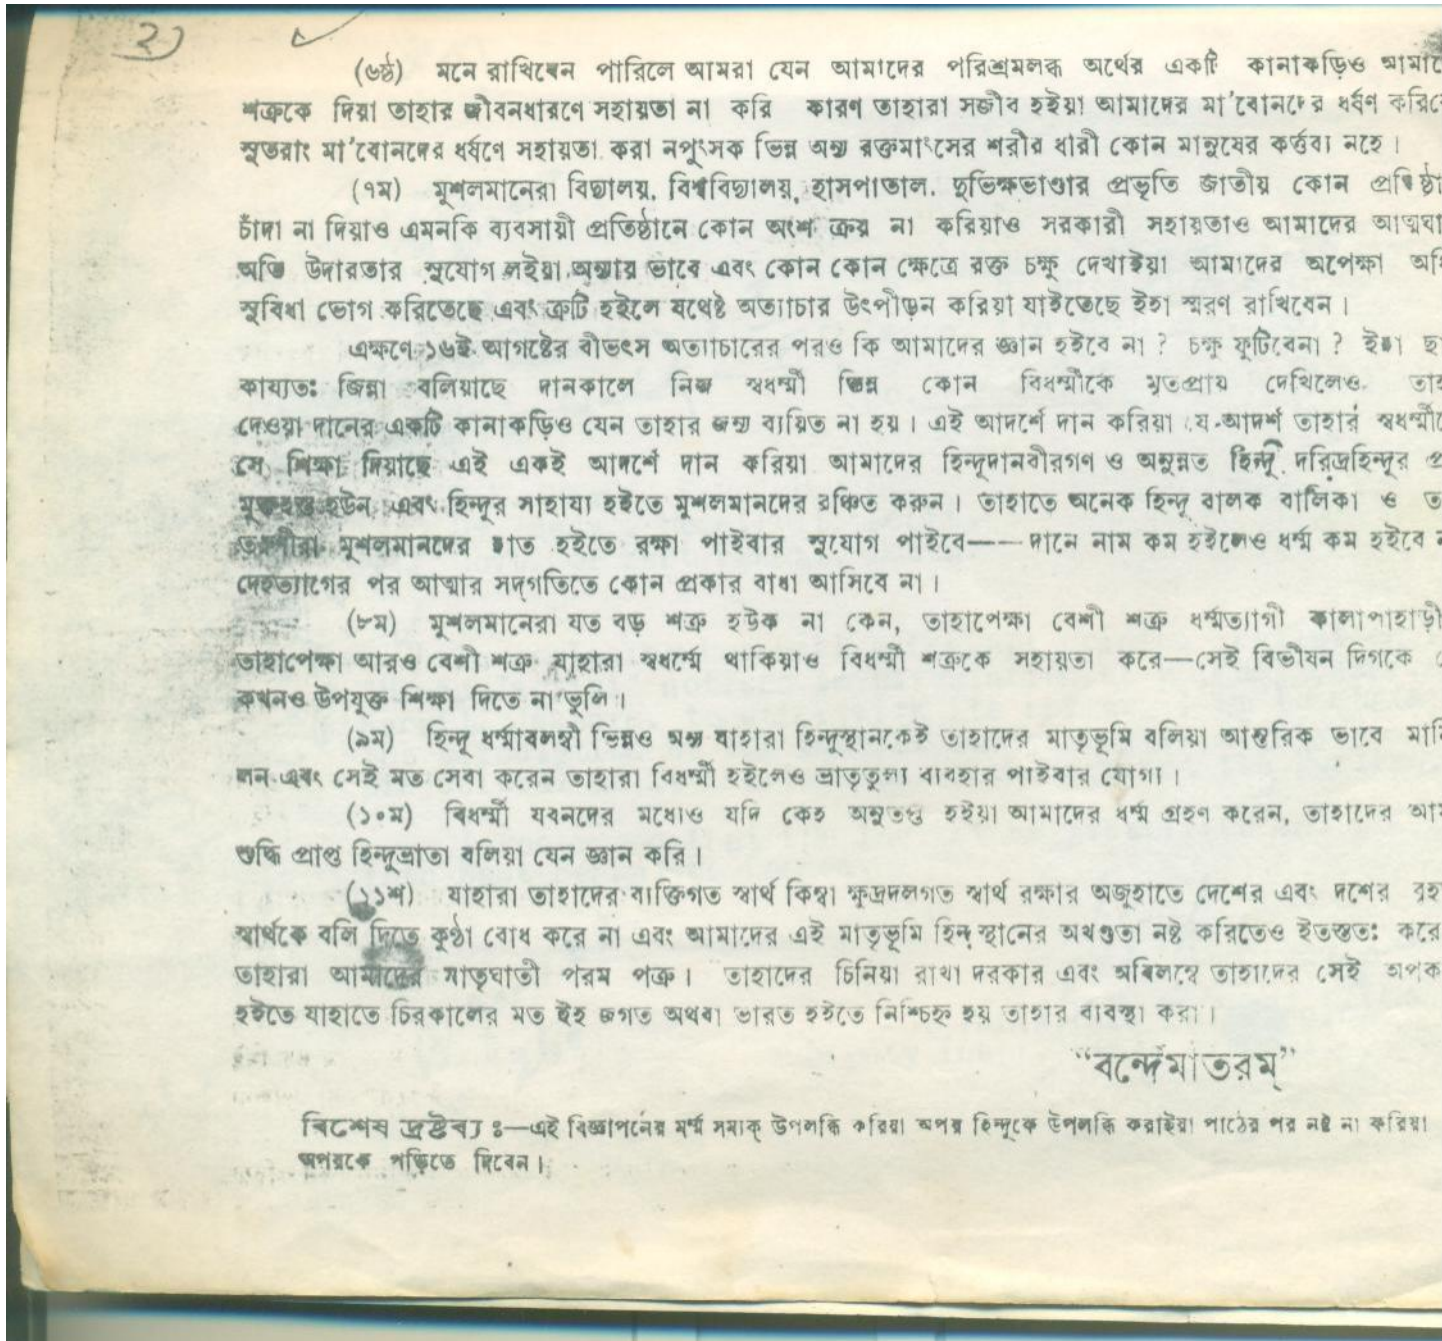 ২)
(৬ষ্ঠ) মনে রাখিবেন পারিলে আমরা যেন আমাদের পরিশ্রমলব্ধ অর্থের একটি কানাকড়িও
শত্রুকে দিয়া তাহার জীবনধারণে সহায়তা না করি কারণ তাহারা সজীব হইয়া আমাদের মা'বোনদের ধর্ষণ
সুতরাং মা'বোনদের ধর্ষণে সহায়তা করা নপুংসক ভিন্ন অন্য রক্তমাংসের শরীর ধারী কোন মানুষের কর্ত্তব্য নহে।
(৭ম) মুশলমানেরা বিদ্যালয়, বিশ্ববিদ্যালয়, হাসপাতাল. দুর্ভিক্ষভাণ্ডার প্রভৃতি জাতীয় কোন
চাঁদা না দিয়াও এমনকি ব্যবসায়ী প্রতিষ্ঠানে কোন অংশ ক্রয় না করিয়াও সরকারী সহায়তাও আমাদের
অতি উদারতার সুযোগ লইয়া অন্যায় ভাবে এবং কোন কোন ক্ষেত্রে রক্ত চক্ষু দেখাইয়া আমাদের অপেক্ষা
সুবিধা ভোগ করিতেছে এবং ত্রুটি হইলে যথেষ্ট অত্যাচার উৎপীড়ন করিয়া যাইতেছে ইহা স্মরণ রাখিবেন।
এক্ষণে ১৬ই আগষ্টের বীভৎস অত্যাচারের পরও কি আমাদের জ্ঞান হইবে না? চক্ষু ফুটিবেনা? ইহা
কায্যতঃ জিন্না বলিয়াছে দানকালে নিজ স্বধর্ম্মী ভিন্ন কোন বিধর্ম্মীকে মৃতপ্রায় দেখিলেও
দেওয়া দানের একটি কানাকড়িও যেন তাহার জন্য ব্যয়িত না হয়। এই আদর্শে দান করিয়া যে আদর্শ তাহার
সে শিক্ষা দিয়াছে এই একই আদর্শে দান করিয়া আমাদের হিন্দুদানবীরগণ ও অনুন্নত হিন্দু দরিদ্রহিন্দুর
মুক্তহস্ত হউন এবং হিন্দুর সাহায্য হইতে মুশলমানদের বঞ্চিত করুন। তাহাতে অনেক হিন্দু বালক বালিকা ও
তরুণীরা মুশলমানদের হাত হইতে রক্ষা পাইবার সুযোগ পাইবে——দানে নাম কম হইলেও ধর্ম্ম কম হইবে
দেহত্যাগের পর আত্মার সদ্‌গতিতে কোন প্রকার বাধা আসিবে না।
(৮ম) মুশলমানেরা যত বড় শত্রু হউক না কেন, তাহাপেক্ষা বেশী শত্রু ধর্ম্মত্যাগী কালাপাহাড়ী
তাহাপেক্ষা আরও বেশী শত্রু যাহারা স্বধর্ম্মে থাকিয়াও বিধর্ম্মী শত্রুকে সহায়তা করে—সেই বিভীষন দিগকে
কখনও উপযুক্ত শিক্ষা দিতে না ভুলি।
(৯ম) হিন্দু ধর্ম্মাবলম্বী ভিন্নও অন্য যাহারা হিন্দুস্থানকেই তাহাদের মাতৃভূমি বলিয়া আন্তরিক ভাবে
লন এবং সেই মত সেবা করেন তাহারা বিধর্ম্মী হইলেও ভ্রাতৃতুল্য ব্যবহার পাইবার যোগ্য।
(১০ম) বিধর্ম্মী যবনদের মধ্যেও যদি কেহ অনুতপ্ত হইয়া আমাদের ধর্ম্ম গ্রহণ করেন, তাহাদের
শুদ্ধি প্রাপ্ত হিন্দুভ্রাতা বলিয়া যেন জ্ঞান করি।
(১১শ) যাহারা তাহাদের ব্যক্তিগত স্বার্থ কিম্বা ক্ষুদ্রদলগত স্বার্থ রক্ষার অজুহাতে দেশের এবং দশের
স্বার্থকে বলি দিতে কুণ্ঠা বোধ করে না এবং আমাদের এই মাতৃভূমি হিন্দুস্থানের অখণ্ডতা নষ্ট করিতেও ইতস্ততঃ করে
তাহারা আমাদের মাতৃঘাতী পরম শত্রু। তাহাদের চিনিয়া রাখা দরকার এবং অবিলম্বে তাহাদের সেই
হইতে যাহাতে চিরকালের মত ইহ জগত অথবা ভারত হইতে নিশ্চিহ্ন হয় তাহার ব্যবস্থা করা।
“বন্দেমাতরম্”
বিশেষ দ্রষ্টব্য ঃ—এই বিজ্ঞাপনের মর্ম্ম সম্যক্ উপলব্ধি করিয়া অপর হিন্দুকে উপলব্ধি করাইয়া পাঠের পর নষ্ট না করিয়া
অপরকে পড়িতে দিবেন।